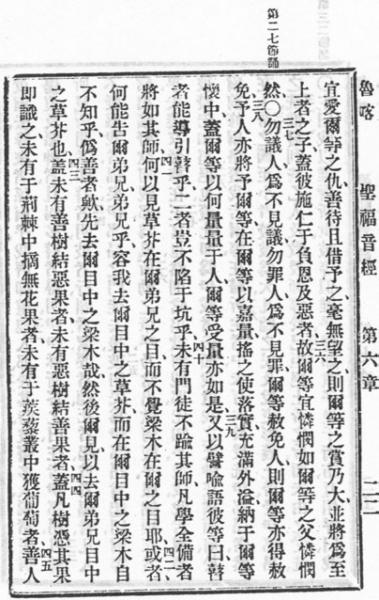 第二七節誦
魯喀 聖福音經 第六章 二二
宜愛爾等之仇、善待且借予之、毫無望之、則爾等之賞乃大、並將爲至
上者之子、蓋彼施仁于負恩及惡者、三六故爾等宜憐憫、如爾等之父憐憫
然、○三七勿議人、爲不見議、勿罪人、爲不見罪、爾等赦免人、則爾等亦得赦
免、三八予人、亦將予爾等、在爾等以嘉量、搖之使落實、充滿外溢、納于爾等
懷中、蓋爾等以何量量于人、爾等受量亦如是、三九又以譬喻語彼等曰、瞽
者能導引瞽乎、二者豈不陷于坑乎、四十未有門徒不踰其師、凡學全備者、
將如其師、四一何以見草芥在爾弟兄之目、而不覺梁木在爾之目耶、四二或者
何能告爾弟兄、弟兄乎、容我去爾目中之草芥、而在爾目中之梁木自
不知乎、僞善者歟、先去爾目中之梁木哉、然後爾見以去爾弟兄目中
之草芥也、四三蓋未有善樹結惡果者、未有惡樹結善果者、四四蓋凡樹憑其果
即識之、未有于荊棘中摘無花果者、未有于蒺藜叢中獲葡萄者、四五善人